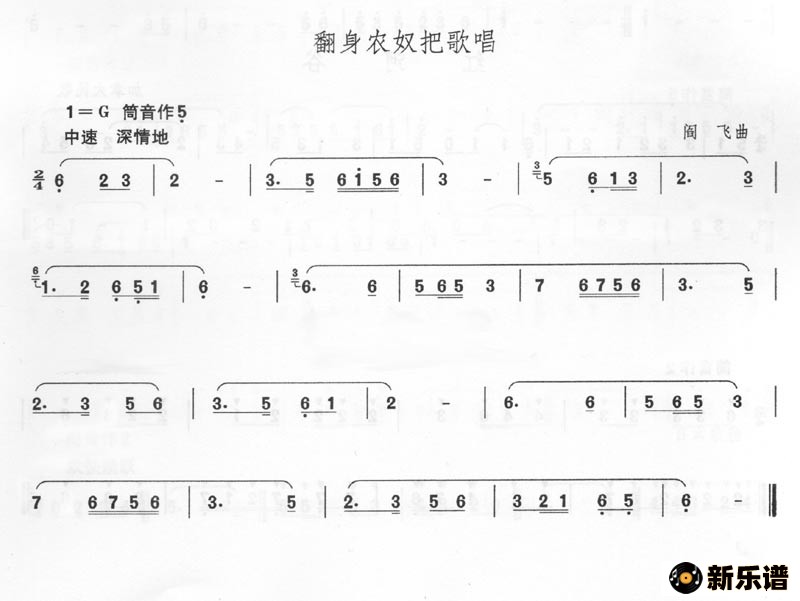 翻身农奴把歌唱
1＝G 筒音作5̣
中速 深情地
阎 飞曲
2/4 6̣ 2 3 | 2 - | 3. 5 6 i 5 6 | 3 - | 3 5 6̣ 1 3 | 2. 3 |
6 1. 2 6̣ 5̣ 1 | 6̣ - | 3 6. 6 | 5 6 5 3 | 7 6 7 5 6 | 3. 5 |
2. 3 5 6 | 3. 5 6̣ 1 | 2 - | 6. 6 | 5 6 5 3 |
7 6 7 5 6 | 3. 5 | 2. 3 5 6 | 3 2 1 6̣ 5̣ | 6̣ - ‖
新乐谱